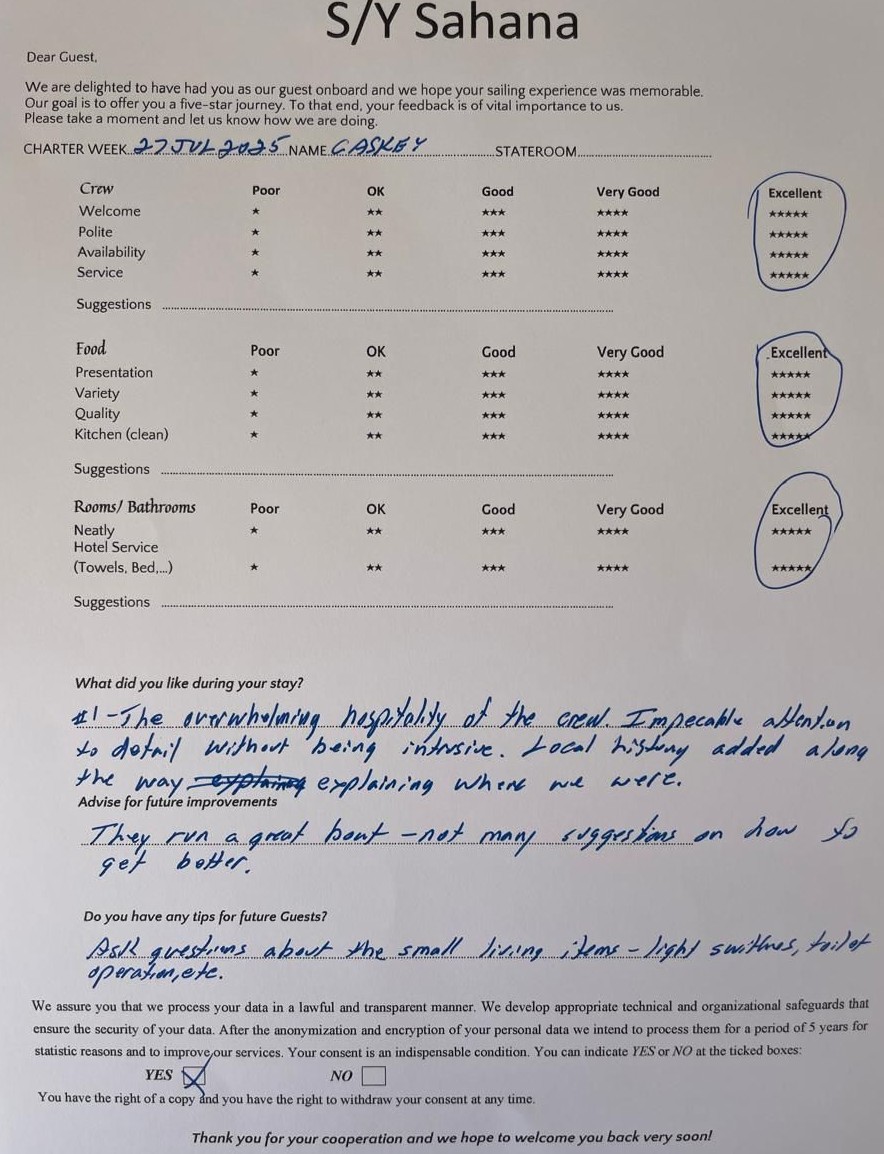 S/Y Sahana
Dear Guest,
We are delighted to have had you as our guest onboard and we hope your sailing experience was memorable.
Our goal is to offer you a five-star journey. To that end, your feedback is of vital importance to us.
Please take a moment and let us know how we are doing.
CHARTER WEEK 27 JUL 2025 NAME CASKEY STATEROOM
Crew Poor OK Good Very Good Excellent
Welcome ★ ★★ ★★★ ★★★★ ★★★★★
Polite ★ ★★ ★★★ ★★★★ ★★★★★
Availability ★ ★★ ★★★ ★★★★ ★★★★★
Service ★ ★★ ★★★ ★★★★ ★★★★★
Suggestions
Food Poor OK Good Very Good Excellent
Presentation ★ ★★ ★★★ ★★★★ ★★★★★
Variety ★ ★★ ★★★ ★★★★ ★★★★★
Quality ★ ★★ ★★★ ★★★★ ★★★★★
Kitchen (clean) ★ ★★ ★★★ ★★★★ ★★★★★
Suggestions
Rooms/ Bathrooms Poor OK Good Very Good Excellent
Neatly ★ ★★ ★★★ ★★★★ ★★★★★
Hotel Service
(Towels, Bed,...) ★ ★★ ★★★ ★★★★ ★★★★★
Suggestions
What did you like during your stay?
#1 - The overwhelming hospitality of the crew. Impecable attention
to detail without being intrusive. Local history added along
the way explaining where we were.
Advise for future improvements
They run a great boat - not many suggestions on how to
get better.
Do you have any tips for future Guests?
Ask questions about the small living items - light swithes, toilet
operation, etc.
We assure you that we process your data in a lawful and transparent manner. We develop appropriate technical and organizational safeguards that
ensure the security of your data. After the anonymization and encryption of your personal data we intend to process them for a period of 5 years for
statistic reasons and to improve our services. Your consent is an indispensable condition. You can indicate YES or NO at the ticked boxes:
YES NO
You have the right of a copy and you have the right to withdraw your consent at any time.
Thank you for your cooperation and we hope to welcome you back very soon!